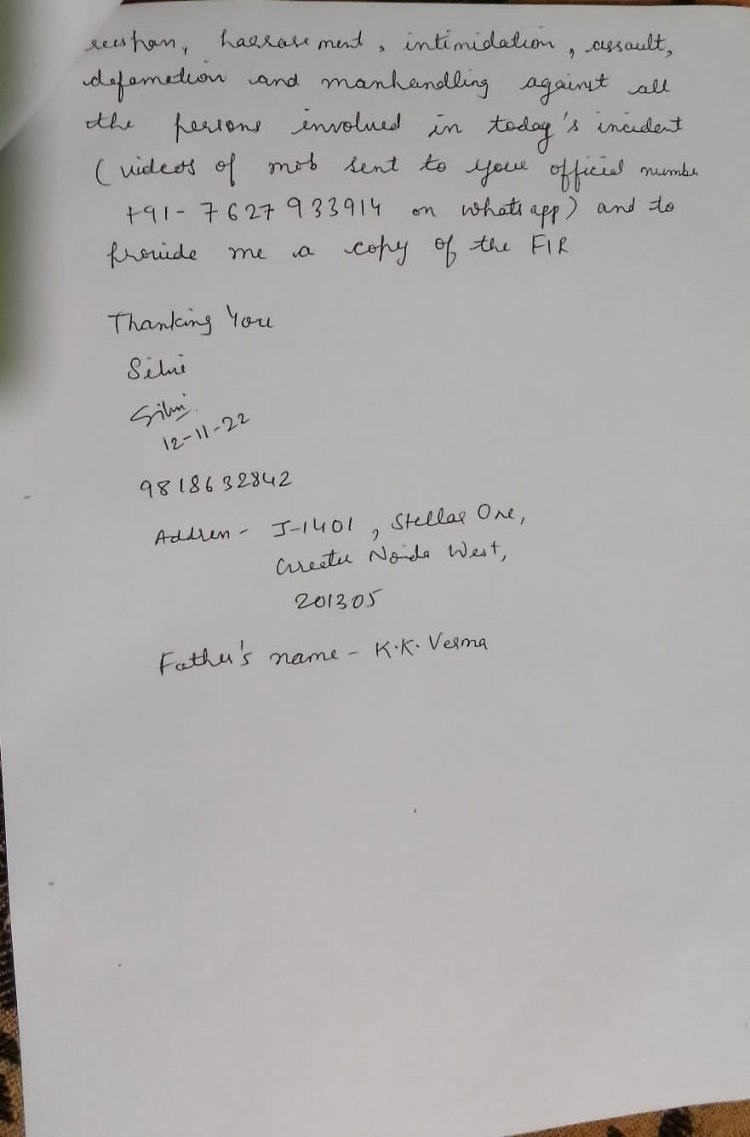 harrasement, intimidation, assault,
defamation and manhandling against all
the persons involved in today's incident
(videos of mob sent to your official number
+91-7627933914 on whatsapp) and to
provide me a copy of the FIR
Thanking You
12-11-22
9818632842
Address - J-1401, Stellar One,
Greater Noida West,
201305
Father's name - K.K. Verma